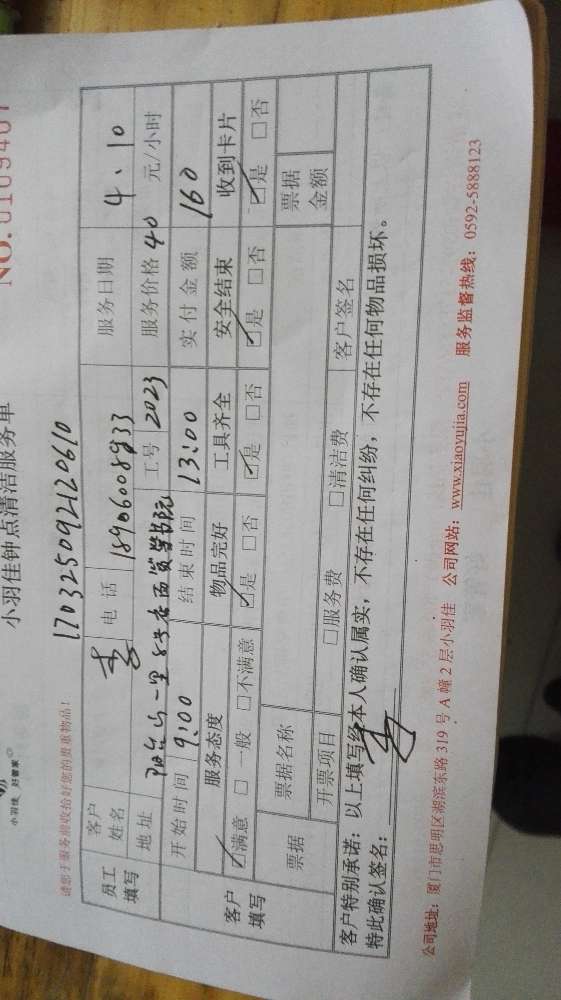 小羽佳 好管家
小羽佳钟点清洁服务单
NO.0109407
请您于服务前收拾好您的贵重物品!
170325092120610
员工填写 客户姓名 李 电话 18906008933 服务日期 4、10
地址 阳台山一里 工号 2023 服务价格 40 元/小时
开始时间 9:00 结束时间 13:00 实付金额 160
客户填写 服务态度 物品完好 工具齐全 安全结束 收到卡片
☑满意 □一般 □不满意 ☑是 □否 ☑是 □否 ☑是 □否 ☑是 □否
票据 票据名称 票据金额
开票项目 □服务费 □清洁费 客户签名
客户特别承诺:以上填写经本人确认属实,不存在任何纠纷,不存在任何物品损坏。
特此确认签名: 李
公司地址:厦门市思明区湖滨东路319号A幢2层小羽佳 公司网站:www.xiaoyujia.com 服务监督热线:0592-5888123